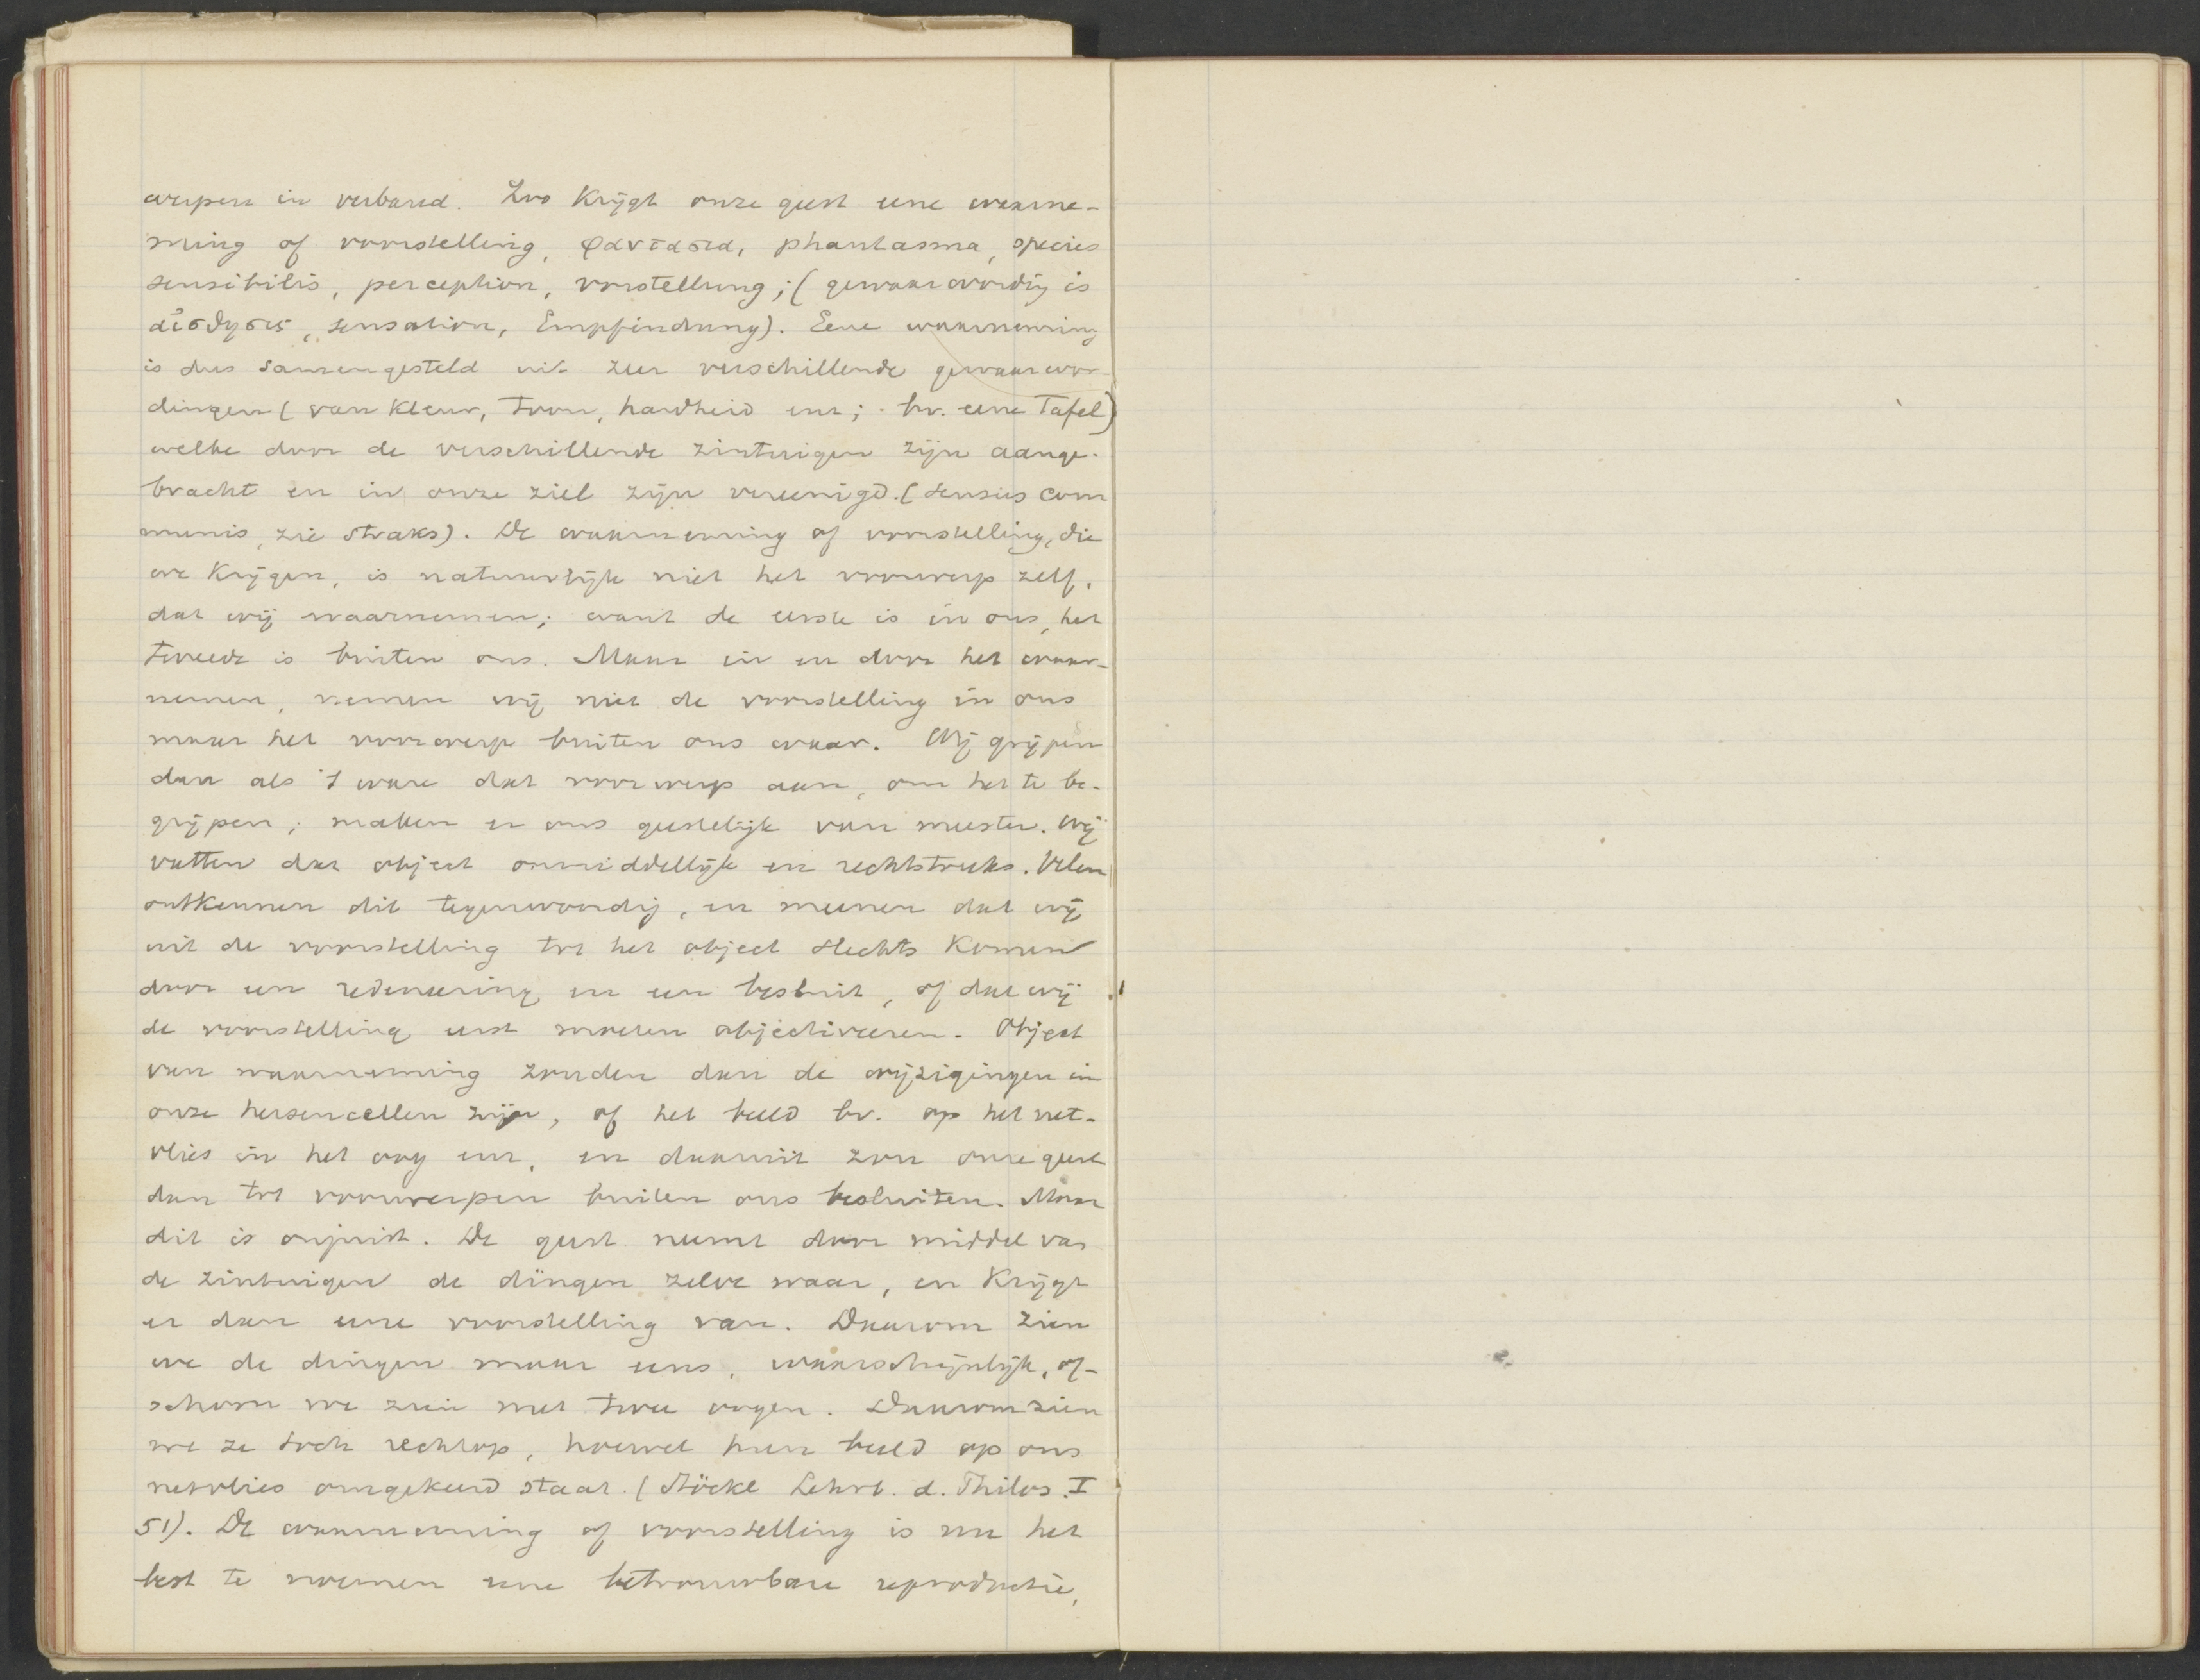 werpen in verband. Zoo krijgt onze geest eene waarne-
ming of voorstelling, φαντασια, phantasma, species
sensibilis, perception, vorstellung; (gewaarwording is
αἰσθησις, sensation, Empfindung). Eene waarneming
is dus samengesteld uit zeer verschillende gewaarwor-
dingen (van kleur, toon, hardheid enz; bv. eene Tafel)
welke door de verschillende zintuigen zijn aange-
bracht en in onze ziel zijn vereenigd. (sensus com
munis, zie straks). De waarneming of voorstelling, die
we krijgen, is natuurlijk niet het voorwerp zelf,
dat wij waarnemen; want de eerste is in ons, het
tweede is buiten ons. Maar in en door het waar-
nemen, nemen wij niet de voorstelling in ons
maar het voorwerp buiten ons waar. Wij grijpen
dan als 't ware dat voorwerp aan, om het te be-
grijpen; maken er ons geestelijk van meester. Wij
vatten dat object onmiddellijk en rechtstreeks. Velen
ontkennen dit tegenwoordig, en meenen dat wij
uit de voorstelling tot het object slechts komen
door een redeneering en een besluit, of dat wij
de voorstelling eerst moeten objectiveeren. Object
van waarneming zouden dan de wijzigingen in
onze hersencellen zijn, of het beeld bv. op het net-
vlies in het oog enz, en daaruit zou onze geest
dan tot voorwerpen buiten ons besluiten. Maar
dit is onjuist. De geest neemt door middel van
de zintuigen de dingen zelve waar, en krijgt
er dan eene voorstelling van. Daarom zien
we de dingen maar eens, waarschijnlijk, of-
schoon we zien met twee oogen. Daarom zien
we ze toch rechtop, hoewel hun beeld op ons
netvlies omgekeerd staat. (Stöckl Lehrb. d. Philos. I
51). De waarneming of voorstelling is nu het
best te noemen eene betrouwbare reproductie,